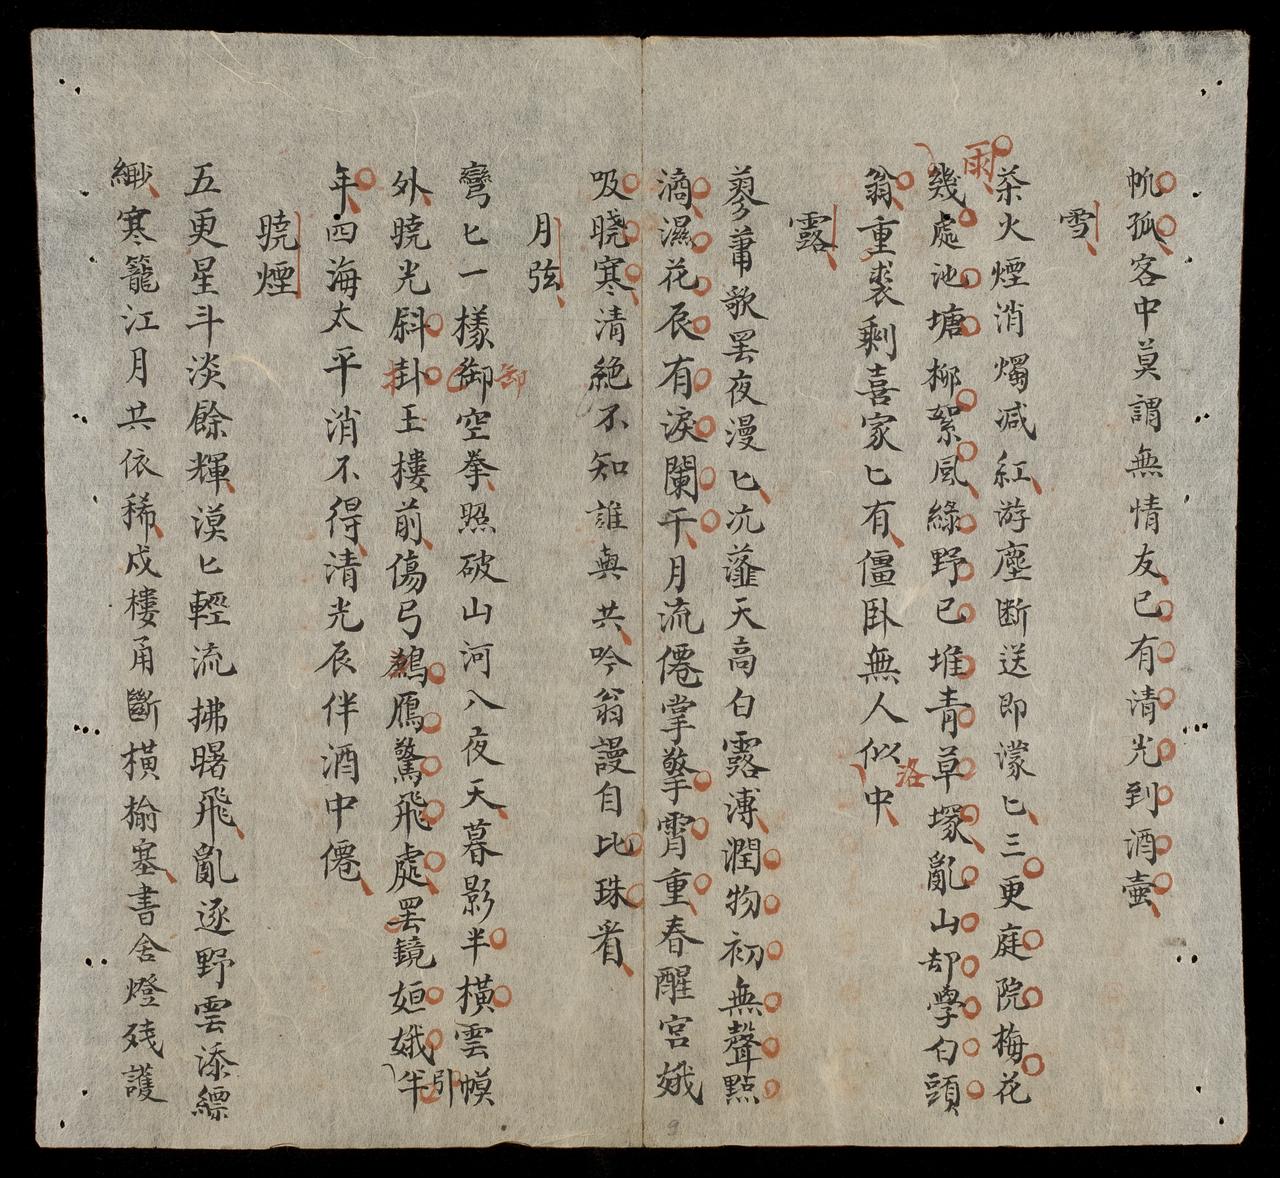 帆孤客中莫謂無情友已有清光到酒壺
雪
茶火煙消燭减紅游塵断送即濛匕三更庭院梅花
雨
幾處池塘柳絮風綠野已堆青草塚亂山却學白頭
翁重裘剩喜家匕有僵卧無人似中
洛
露
蓼莆歌罢夜漫匕沆瀣天高白露漙潤物初無聲點
滴濕花辰有淚闌干月流僊掌擎霄重春醒宮娥
吸曉寒清絶不知誰與共吟翁謾自比珠看
月弦
彎匕一樣御空拳照破山河八夜天暮影半橫雲幙
卸
外曉光斜掛玉樓前傷弓鷀鴈驚飛處罢鏡姮娥半
引
年四海太平消不得清光辰伴酒中僊
曉煙
五更星斗淡餘輝漠匕輕流拂曙飛亂逐野雲添縹
緲寒籠江月共依稀戍樓甬斷橫榆塞書舍燈残護
9